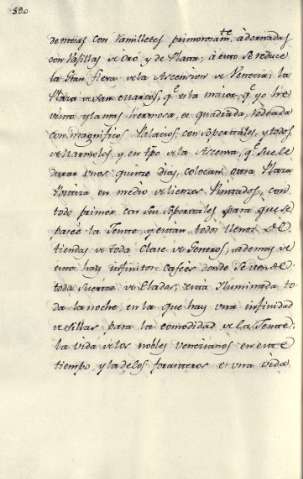 320
de mesas con Ramilletes primorosam.te adornados
con Vasillas de Oro, y de Plata; à esto se reduce
la Gran fiera de la Ascension de Venecia; la
Plaza de San Marcos, q.e es la maior, q.e yo he
visto y la mas hermosa, es quadrada, rodeada
con magnificos Palacios, con Soportales, y todos
de Marmoles, y en tpo de la Ascensa, q.e suele
durar unos quince dias, colocan otra Plaza
Postiza en medio de lienzos Pintados, con
todo primor con sus Soportales para que se
pasee la Gente, y estàn todos llenos de
tiendas de toda Clase de Generos, ademas de
esto hay infinitos Cafées donde se venden
toda Suerte de Elados; està Iluminada to
da la noche, en la que hay una infinidad
de Sillas para la comodidad de las Gentes.
La vida de los nobles Venecianos en este
tiempo, y la de los forasteros es una vida